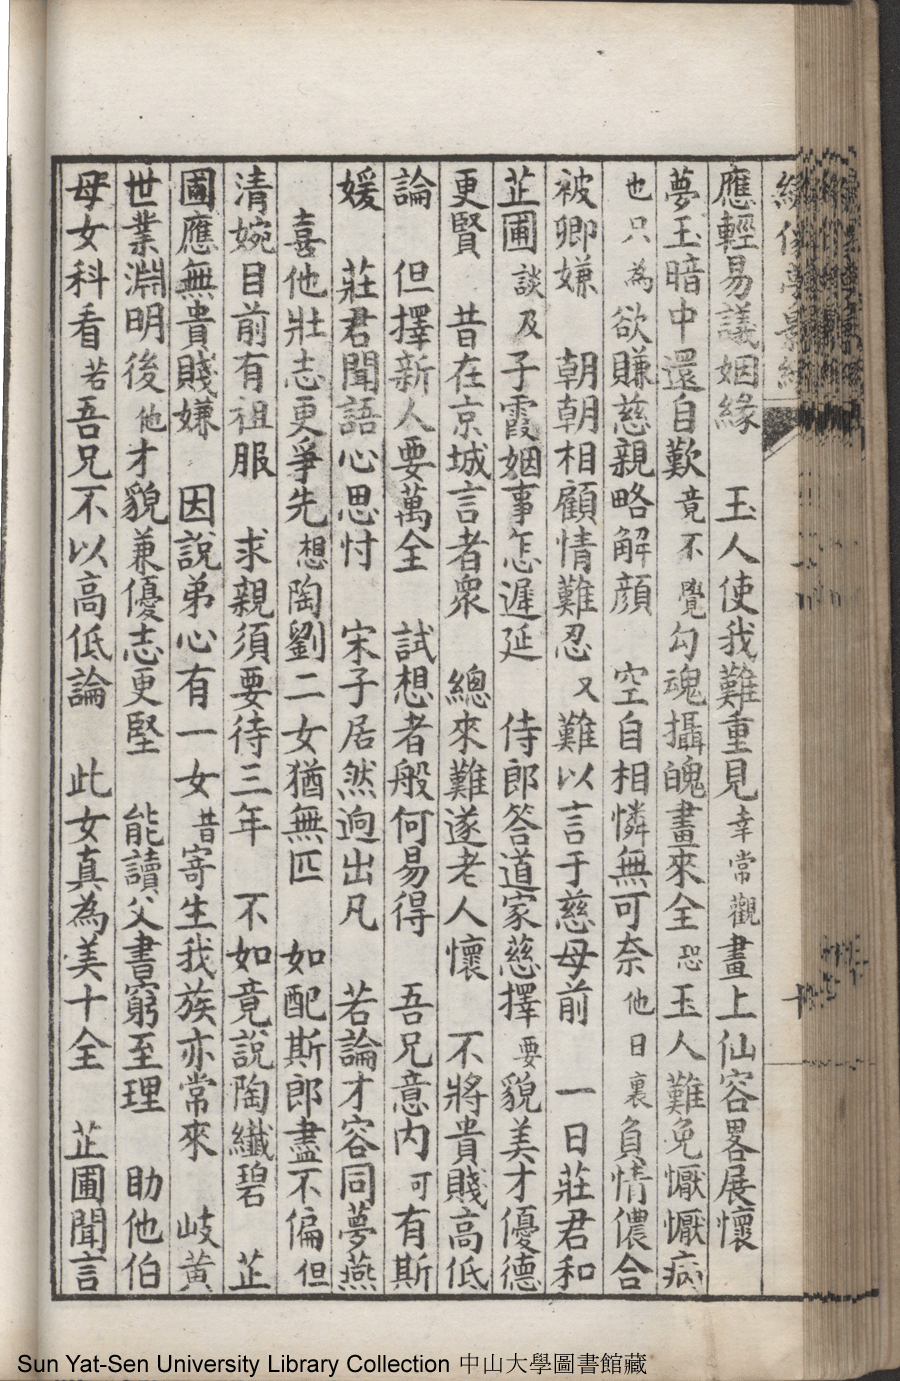 應輕易議姻緣　玉人使我難重見幸常觀畫上仙容畧展懷
夢玉暗中還自歎竟不覺勾魂攝魄畫來全恐玉人難免懨懨病
也只為欲賺慈親略解顏　空自相憐無可奈他日裏負情儂合
被卿嫌　朝朝相顧情難忍又難以言于慈母前　一日莊君和
芷圃談及子霞姻事怎遲延　侍郎答道家慈擇要貌美才優德
更賢　昔在京城言者衆　總來難遂老人懷　不將貴賤高低
論　但擇新人要萬全　試想者般何易得　吾兄意内可有斯
媛　莊君聞語心思忖　宋子居然逈出凡　若論才容同夢燕
喜他壯志更爭先想陶劉二女猶無匹　如配斯郎盡不偏但
清婉目前有祖服　求親須要待三年　不如竟說陶纖碧　芷
國應無貴賤嫌　因說弟心有一女昔寄生我族亦常來　岐黃
世業淵明後他才貌兼優志更堅　能讀父書窮至理　助他伯
母女科看若吾兄不以高低論　此女真為美十全　芷圃聞言
Sun Yat-Sen University Library Collection 中山大學圖書館藏